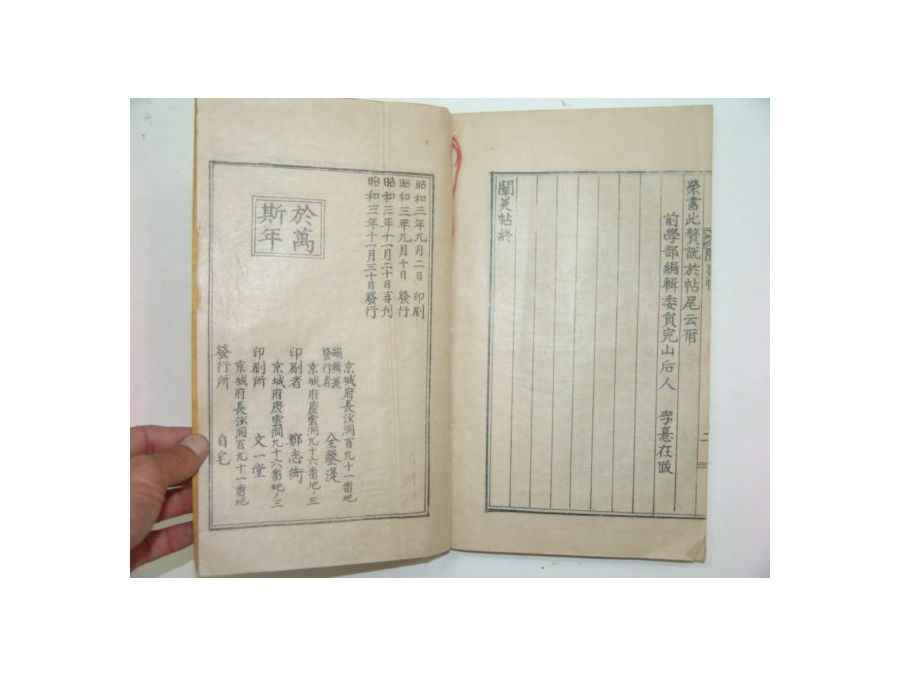 榮書此贅說於帖尾云爾
前學部編輯委員完山后人 李憙在跋
闡美帖終
昭和三年九月二日 印刷
昭和三年九月十日 發行
昭和三年十一月二十日再刊
昭和三年十一月三十日發行
於萬
斯年
京城府長沙洞百九十一番地
編輯兼
發行者 全
京城府慶雲洞九十六番地ノ三
印刷者 鄭志衒
京城府慶雲洞九十六番地ノ三
印刷所 文一堂
京城府長沙洞百九十一番地
發行所 自宅